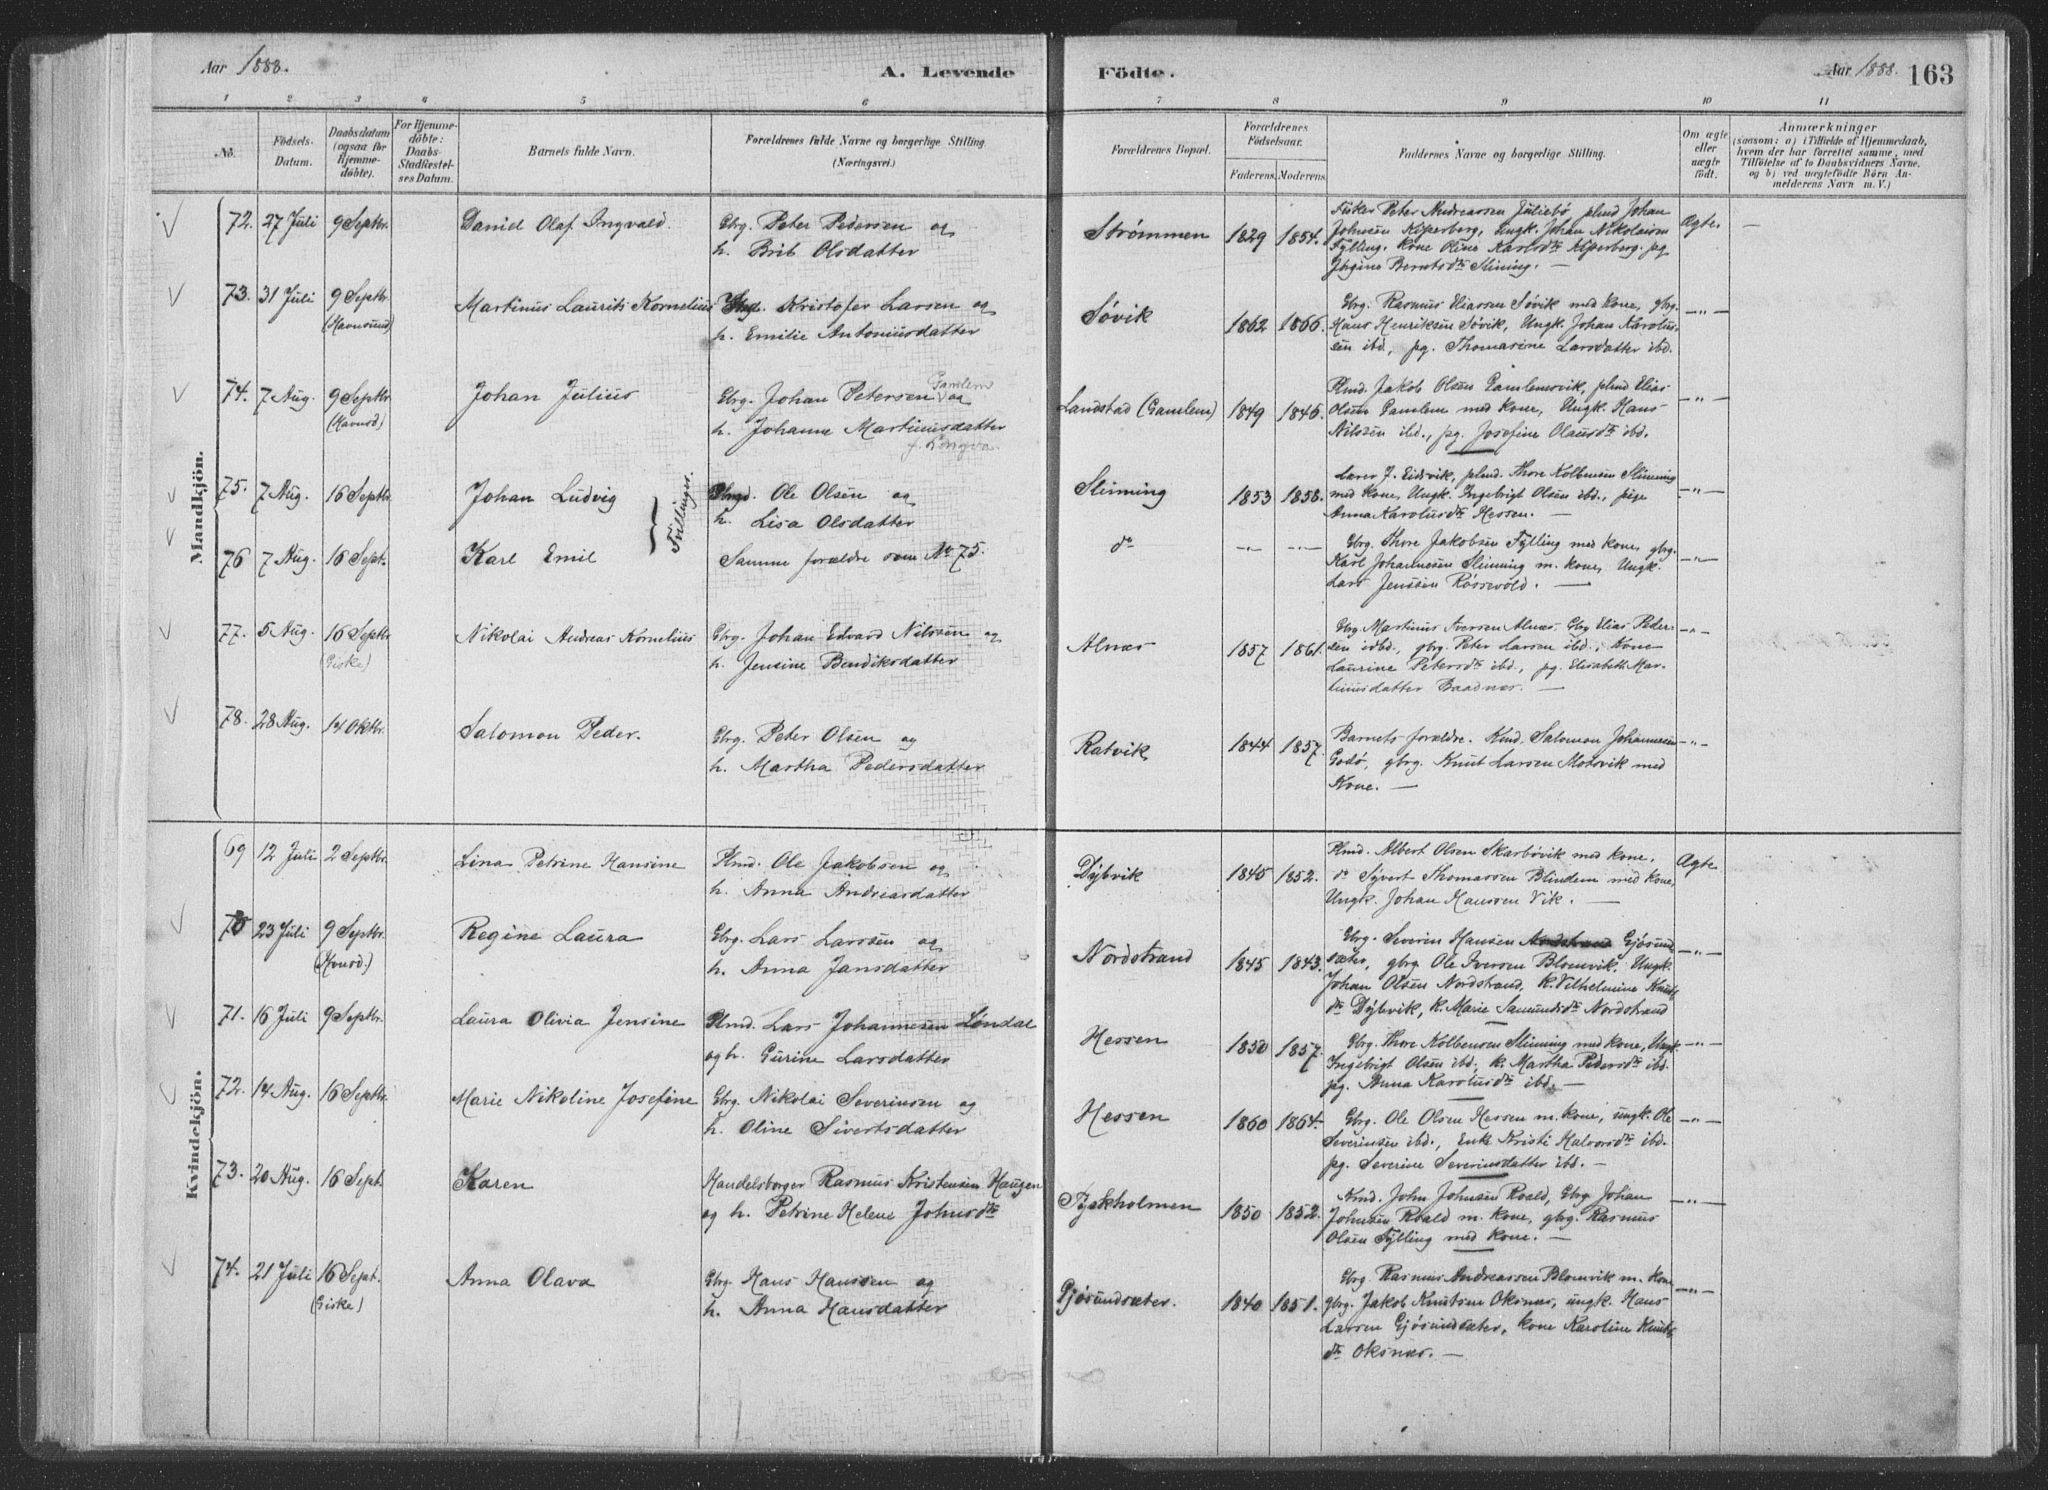 Aar 1888.
A. Levende Födte.
Aar 1888. 163
1 2 3 4 5 6 7 8 9 10 11
No.
Födsels-
Datum.
Daabsdatum
(ogsaa for
Hjemme-
döbte).
For Hjemme-
döbte:
Daabs-
Stadfæstel-
ses Datum.
Barnets fulde Navn.
Forældrenes fulde Navne og borgerlige Stilling
(Næringsvei.)
Forældrenes Bopæl.
Forældrenes
Födselsaar.
Faderens. Moderens.
Faddernes Navne og borgerlige Stilling.
Om ægte
eller
uægte
födt.
Anmærkninger
(saasom: a) i Tilfælde af Hjemmedaab,
hvem der har forrettet samme, med
Tilföielse af to Daabsvidners Navne,
og b) ved uægtefödte Börn An-
melderens Navn m. V.)
Mandkjön.
72. 27 Juli 9 Septbr. Daniel Olaf Ingvald Gbrg. Peter Pedersen og
h. Brit Olsdatter
Strömmen 1829 1854.
Fisker Peter Andreassen Juliebø plmd Johan
Johnsen Kipperberg, Ungk. Johan Nikolaisen
Fylling, Kone Oline Karlsdtr Kipperberg, pg
Jørgine Berntsdtr Slining. —
Ægte. —
73. 31 Juli 9 Septbr. (Havnsund) Martinus Laurits Kornelius Kristofer Larsen og
h. Emilie Antoniusdatter
Søvik 1862 1866.
Gbrg. Rasmus Eliassen Søvik med Kone, gbrg.
Hans Henriksen Søvik, Ungk. Johan Karolus-
sen ibd, pg. Thomasine Larsdatter ibd.
—"—
74. 7 Aug. 9 Septbr. (Havnsd) Johan Julius Gbrg. Johan Petersen Gamlem og
h. Johanne Martinusdatter
f. Longva
Landstad (Gamlem) 1849 1846.
Plmd. Jakob Olsen Gamlemsvik, plmd Elias
Olsen Gamlem med Kone, Ungk. Hans
Nilssen ibd., pg. Josefine Olausdtr ibd.
—"—
75. 7 Aug. 16 Septbr. Johan Ludvig Ole Olsen og
h. Lisa Olsdatter
Tvillinger.
Slinning 1853 1858.
Lærer J. Eidsvik, plmd. Thore Kolbensen Slinning
med Kone, Ungk. Ingebrigt Olsen ibd., pige
Anna Karolusdtr Hessen. —
—"—
76 7 Aug. 16 Sept. Karl Emil Samme forældre som No 75.
do —"— —"—
Gbrg. Thore Jakobsen Fylling med Kone, gbrg.
Karl Johannesen Slinning m. Kone, Ungk.
Lars Jenssen Røssevold. —
—"—
77. 5 Aug. 16 Septbr (Giske) Nikolai Andreas Kornelius Gbrg. Johan Edvard Nilssen og
h. Jensine Bendiksdatter
Alnæs 1857 1861.
Gbrg Martinus Iversen Alnæs. Gbrg Elias Peder-
sen ibd., gbrg. Peter Larsen ibd., Kone
Laurine Petersdtr ibd., pg. Elisabeth Mar-
tinusdatter Baadnæs. —
—"—
78. 28 Aug. 14 Oktbr. Salomon Peder. Gbrg. Peter Olsen og
h. Martha Pedersdatter
Ratvik 1844 1857.
Barnets forældre. Kmd. Salomon Johannesen
Godø, gbrg. Knut Larsen Molsvik med
Kone. —
—"—
Kvindekjön.
69 12 Juli 2 Septbr. Lina Petrine Hansine Plmd. Ole Jakobsen og
h. Anna Andreasdatter
Dybvik 1845 1852.
Plmd. Albert Olsen Skarbøvik med Kone.
do Syvert Thomassen Blindem med Kone,
Ungk. Johan Hanssen Vik. —
Ægte
70 23 Juli 9 Septbr. (Hvnsd.) Regine Laura Gbrg. Lars Larssen og
h. Anna Jansdatter
Nordstrand 1845 1843.
Gbrg. Severin Hansen Nordstrand Gjøsund-
sæter, gbrg. Ole Iversen Blomvik, Ungk.
Johan Olsen Nordstrand, K. Vilhelmine Knuts
dtr Dybvik, K. Marie Samundsdtr Nordstrand
—"—
71. 16 Juli 9 Septbr. Laura Olivia Jensine Plmd. Lars Johannesen Løndal
og h. Gurine Larsdatter
Hessen 1850 1857.
Gbrg. Thore Kolbensen Slinning med Kone, Ungk
Ingebrigt Olsen ibd, K. Martha Pedersdtr ibd.
pg. Anna Karolusdtr ibd. —
—"—
72. 14 Aug. 16 Septbr. Marie Nikoline Josefine Gbrg. Nikolai Severinsen og
h. Oline Sivertsdatter
Hessen 1860 1864.
Gbrg. Ole Olsen Hessen m. Kone, ungk. Ole
Severinsen ibd., Enk. Kristi Halvorsdtr ibd.
pg. Severine Severinsdatter ibd. —
—"—
73. 20 Aug. 16 Sept. Karen Handelsborger Rasmus Kristensen Haugen
og h. Petrine Helene Johnsdtr
Tyskholmen 1850 1852.
Kmd. John Johnsen Roald, Gbrg Johan
Johnsen Roald m. Kone, gbrg. Rasmus
Olsen Fylling med Kone. —
—"—
74. 21 Juli 16 Sept. (Giske) Anna Olava Gbrg Hans Hanssen og
h. Anna Hansdatter
Gjøsundsæter. 1840 1851.
Gbrg. Rasmus Andreassen Blomvik m. Kone
gbrg. Jakob Knutsen Oksnæs, ungk. Hans
Larsen Gjøsundsæter, Kone Karoline Knuts
dtr Oksnæs. —
—"—